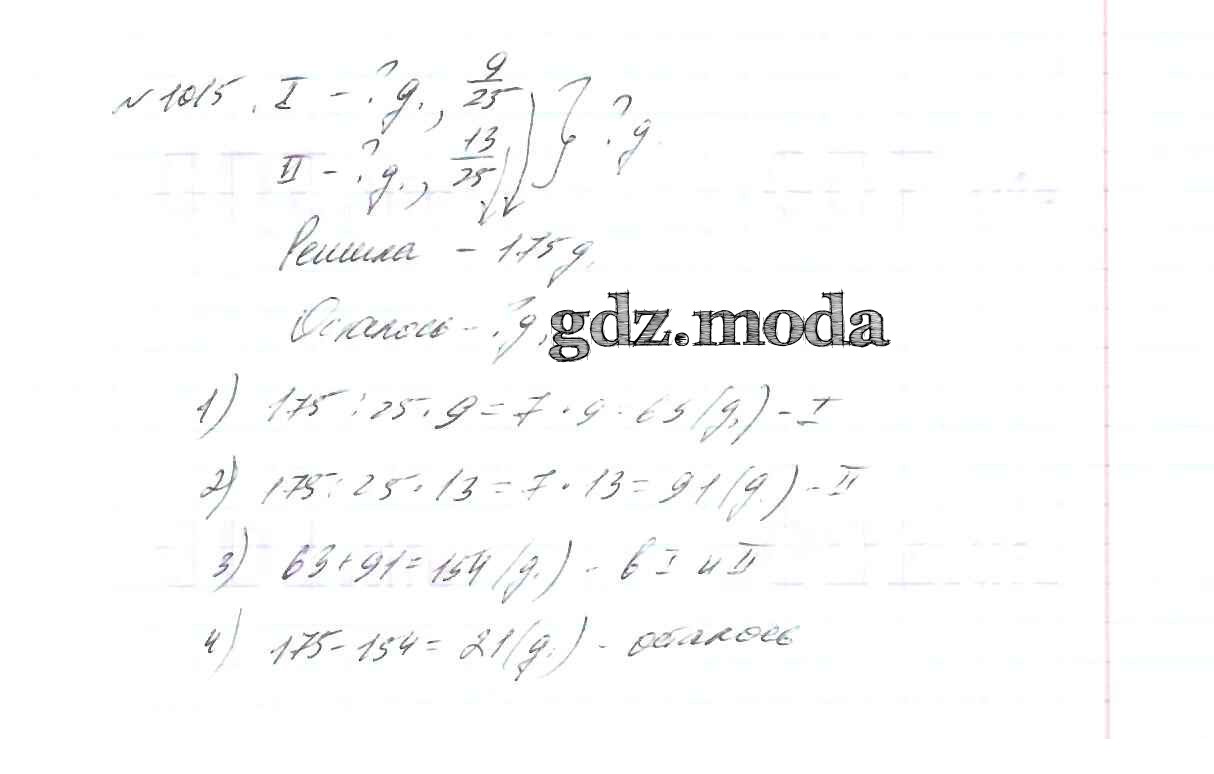 № 1015. I - ? д., 9/25 } ? д.
II - ? д., 13/25
Решила - 175 д.
Осталось - ? д.
gdz.moda
1) 175 : 25 · 9 = 7 · 9 = 63 (д.) - I
2) 175 : 25 · 13 = 7 · 13 = 91 (д.) - II
3) 63 + 91 = 154 (д.) - в I и II
4) 175 - 154 = 21 (д.) - осталось